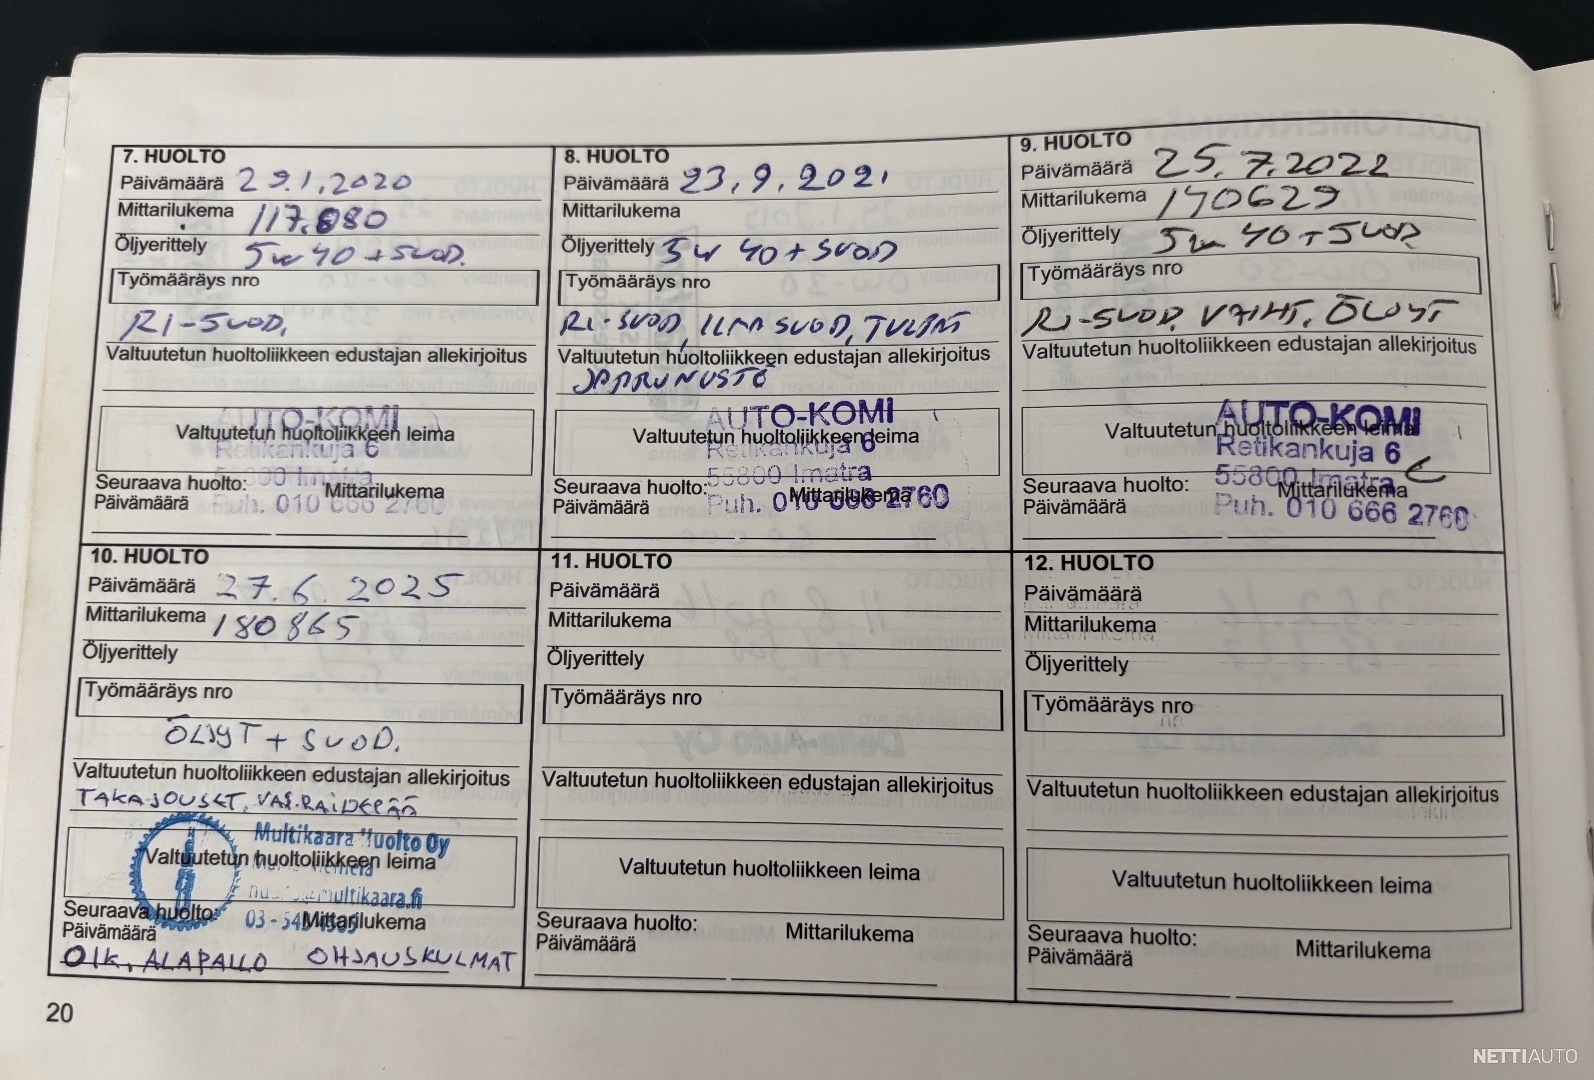 7. HUOLTO
Päivämäärä 29.1.2020
Mittarilukema 117.880
Öljyerittely 5w40+SUOD.
Työmääräys nro
RI-SUOD,
Valtuutetun huoltoliikkeen edustajan allekirjoitus
AUTO-KOMI
Valtuutetun huoltoliikkeen leima
Retikankuja 6
55800 Imatra
Seuraava huolto:
Mittarilukema
Päivämäärä
Puh. 010 666 2760
8. HUOLTO
Päivämäärä 23.9.2021
Mittarilukema
Öljyerittely 5w 40+SUOD
Työmääräys nro
RI-SUOD, ILMA SUOD, TULPAT
Valtuutetun huoltoliikkeen edustajan allekirjoitus
JARRUNESTE
AUTO-KOMI
Valtuutetun huoltoliikkeen leima
Retikankuja 6
55800 Imatra
Seuraava huolto:
Mittarilukema
Päivämäärä
Puh. 010 666 2760
9. HUOLTO
Päivämäärä 25.7.2022
Mittarilukema 140629
Öljyerittely 5w 40+SUOD
Työmääräys nro
RI-SUOD, VAIHT. ÖLJYT
Valtuutetun huoltoliikkeen edustajan allekirjoitus
AUTO-KOMI
Valtuutetun huoltoliikkeen leima
Retikankuja 6
55800 Imatra
Seuraava huolto:
Mittarilukema
Päivämäärä
Puh. 010 666 2760
10. HUOLTO
Päivämäärä 27.6.2025
Mittarilukema 180865
Öljyerittely
Työmääräys nro
ÖLJYT + SUOD.
Valtuutetun huoltoliikkeen edustajan allekirjoitus
TAKAJOUSET, VAS.RAIDEPÄÄ
Multikaara Huolto Oy
Valtuutetun huoltoliikkeen leima
Seuraava huolto:
Mittarilukema
Päivämäärä
OIK. ALAPALLO OHJAUSKULMAT
11. HUOLTO
Päivämäärä
Mittarilukema
Öljyerittely
Työmääräys nro
Valtuutetun huoltoliikkeen edustajan allekirjoitus
Valtuutetun huoltoliikkeen leima
Seuraava huolto:
Mittarilukema
Päivämäärä
12. HUOLTO
Päivämäärä
Mittarilukema
Öljyerittely
Työmääräys nro
Valtuutetun huoltoliikkeen edustajan allekirjoitus
Valtuutetun huoltoliikkeen leima
Seuraava huolto:
Mittarilukema
Päivämäärä
20
NETTIAUTO